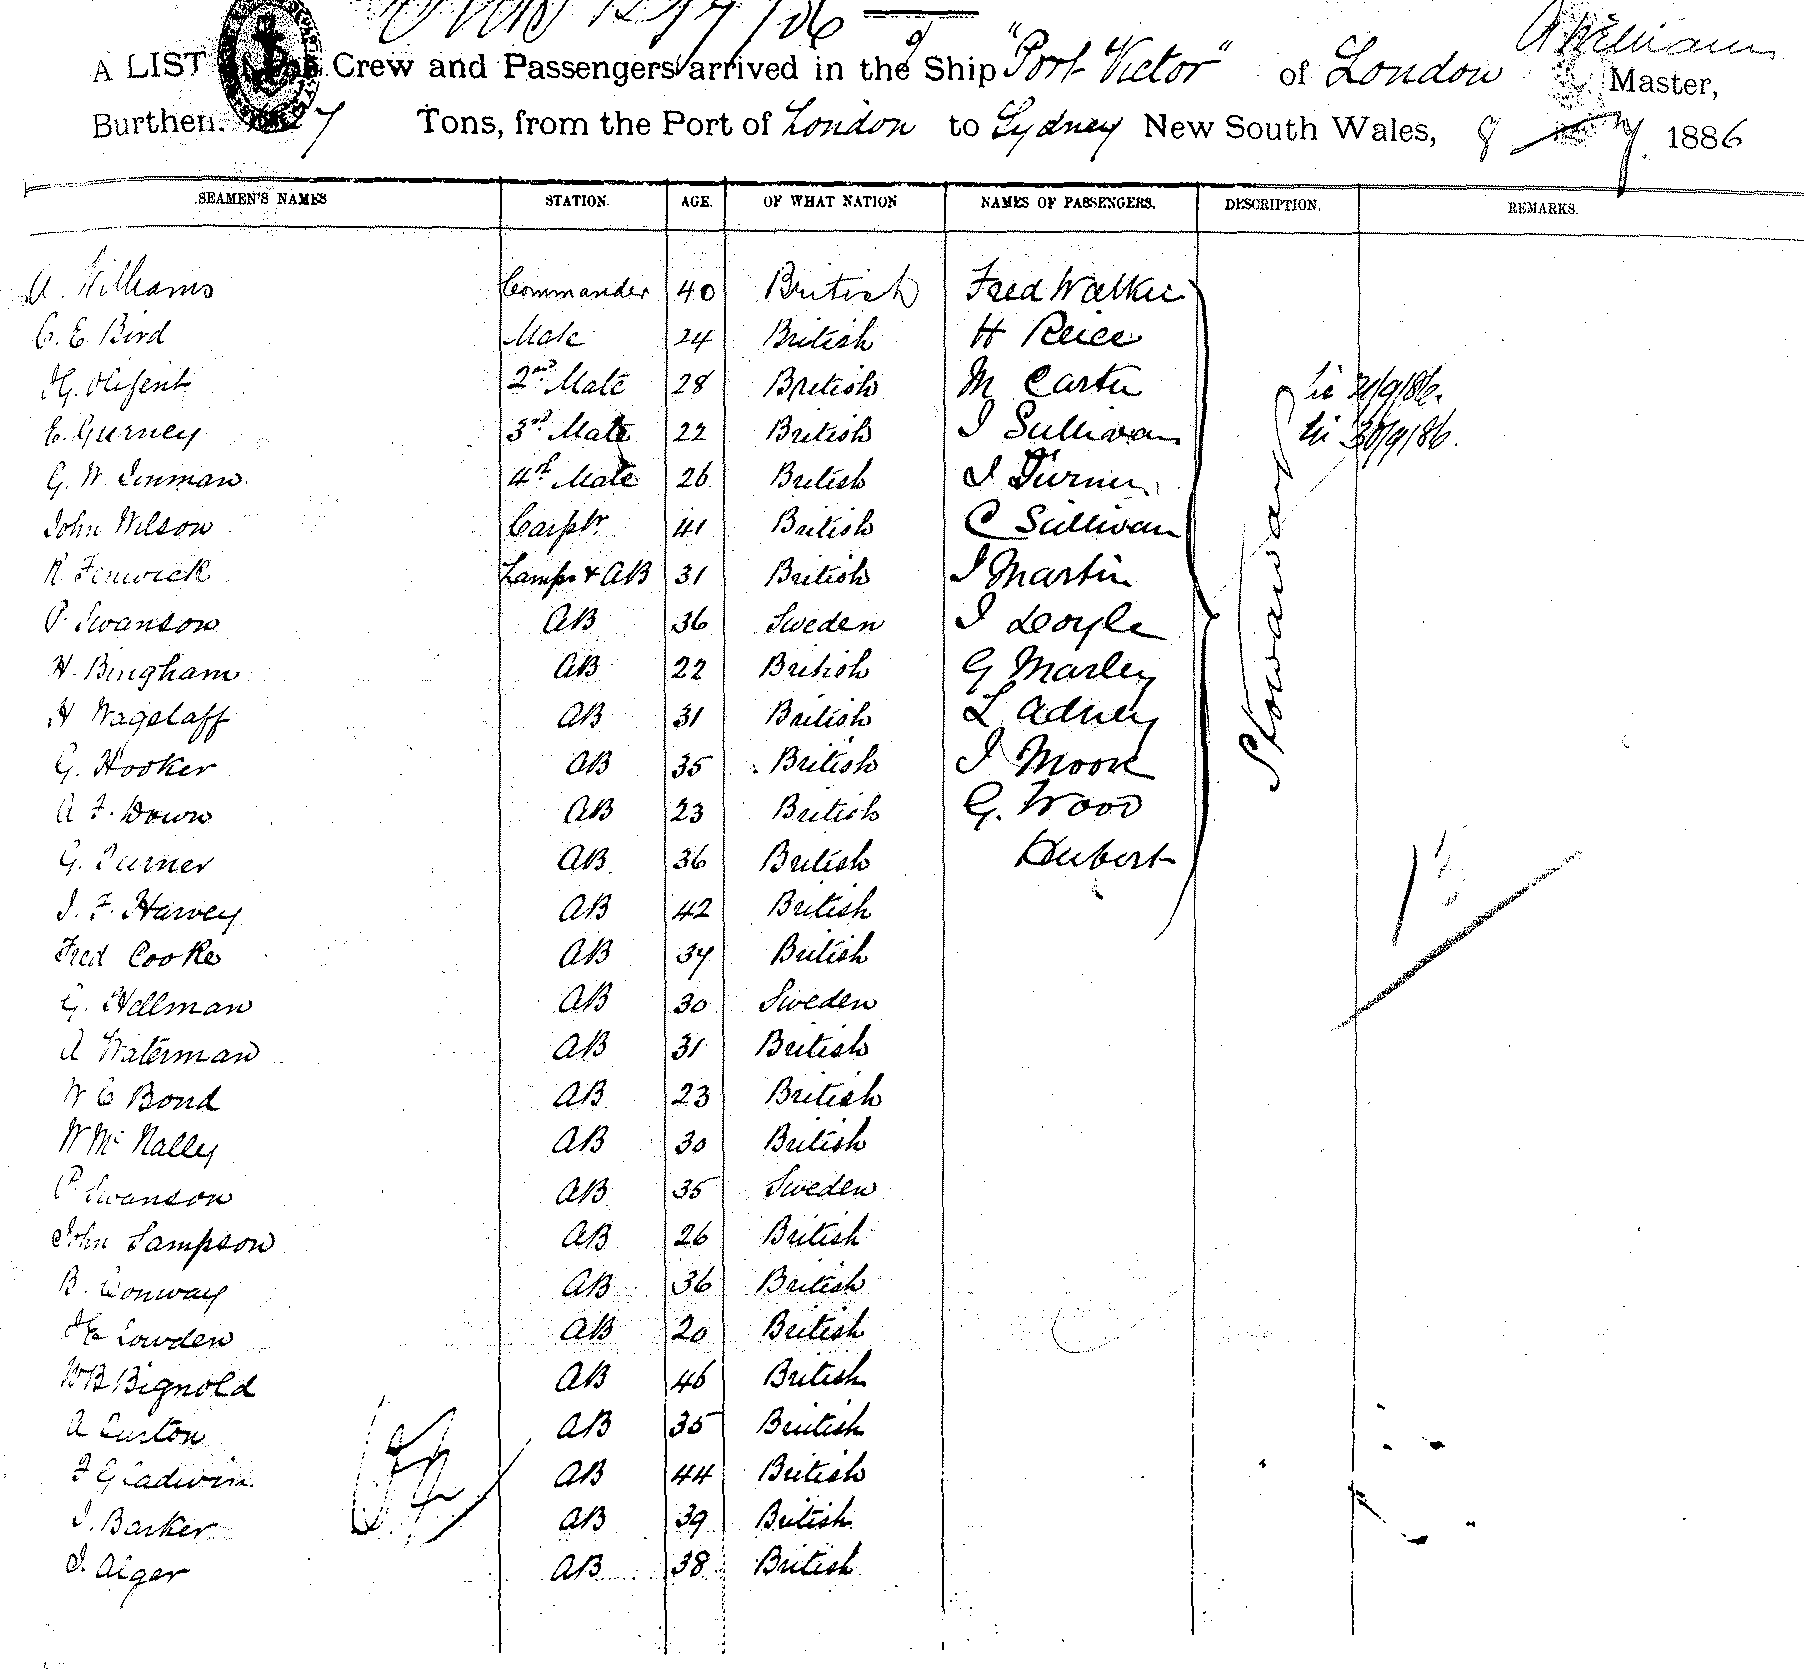 A LIST Crew and Passengers arrived in the Ship "Port Victor" of London A Williams Master,
Burthen. Tons, from the Port of London to Sydney New South Wales, 8 1886
SEAMEN'S NAMES STATION. AGE. OF WHAT NATION NAMES OF PASSENGERS. DESCRIPTION. REMARKS.
A. Williams Commander 40 British Fred Walker
C. E. Bird Mate 24 British H
2nd Mate 28 British M Carter
E. Gurney 3rd Mate 22 British J Sullivan 30/9/86.
G. W. Inman 4th Mate 26 British J Turner
John Wilson Carptr 41 British C Sullivan
R. Fenwick Lamps & AB 31 British J Martin
P. Swanson AB 36 Sweden J Doyle
H. Bingham AB 22 British G Marley
H Wagstaff AB 31 British L Adney
G. Hooker AB 35 British J Moore
A F. Down AB 23 British G. Wood
G. Turner AB 36 British Hubert
J. F. Harvey AB 42 British
Fred Cooke AB 34 British
G. Hellman AB 30 Sweden
A Waterman AB 31 British
W C Bond AB 23 British
W Mc Nalley AB 30 British
P Swanson AB 35 Sweden
John Sampson AB 26 British
B. Conway AB 36 British
Lowden AB 20 British
WB Bignold AB 46 British
A AB 35 British
F Gladwin AB 44 British
J. Barker AB 39 British
J. Aiger AB 38 British
Stowaways